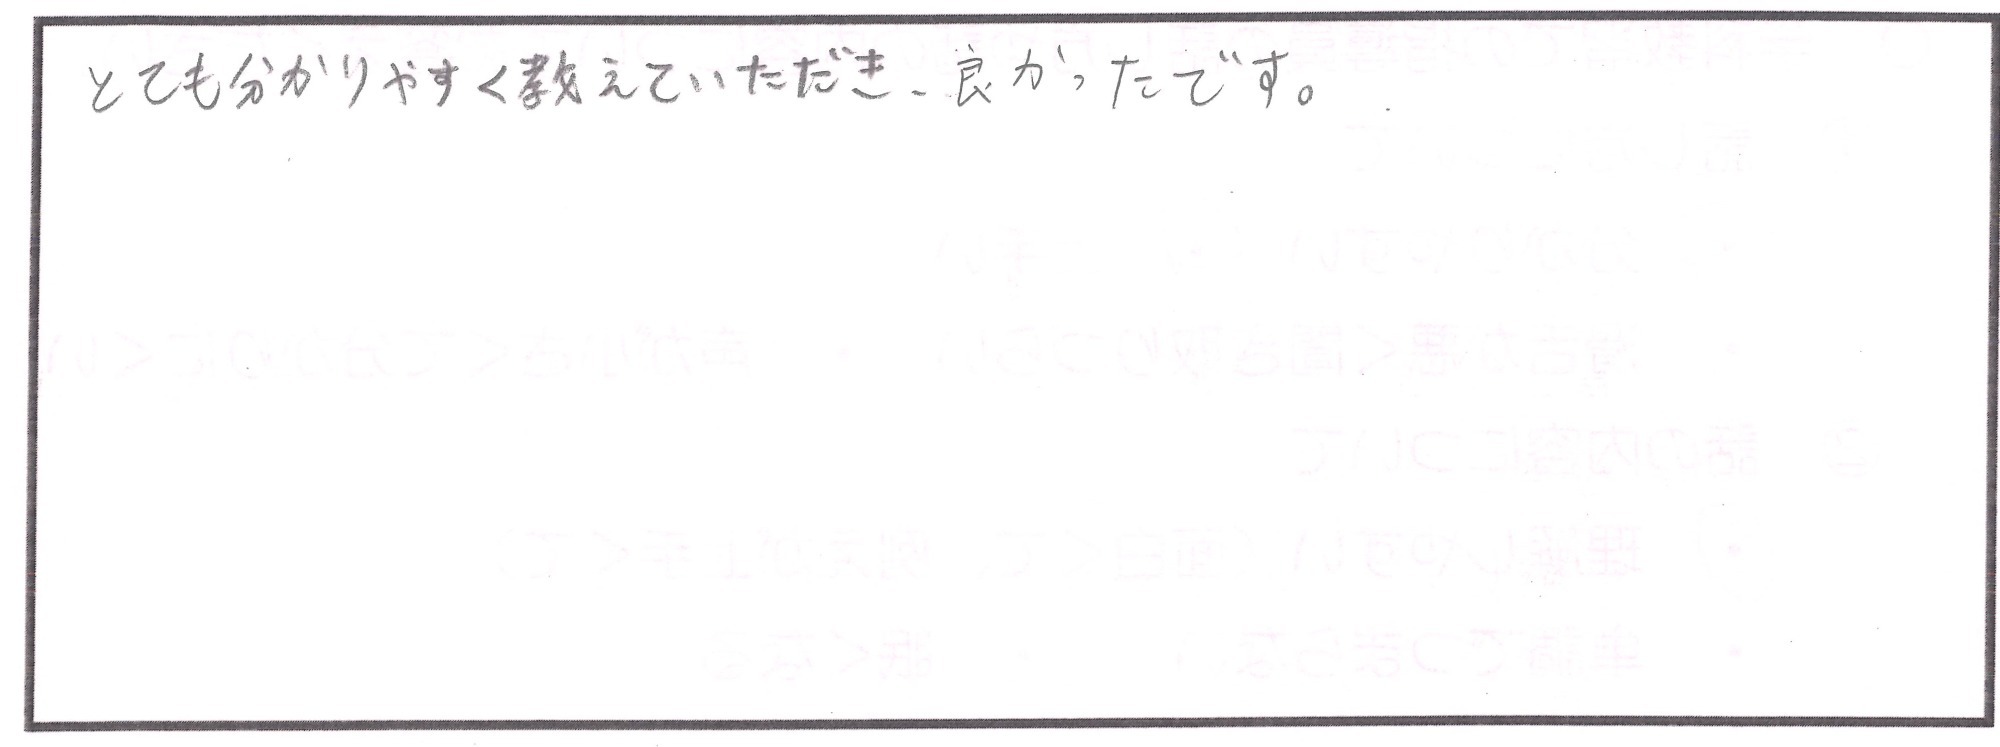 とても分かりやすく教えていただき、良かったです。